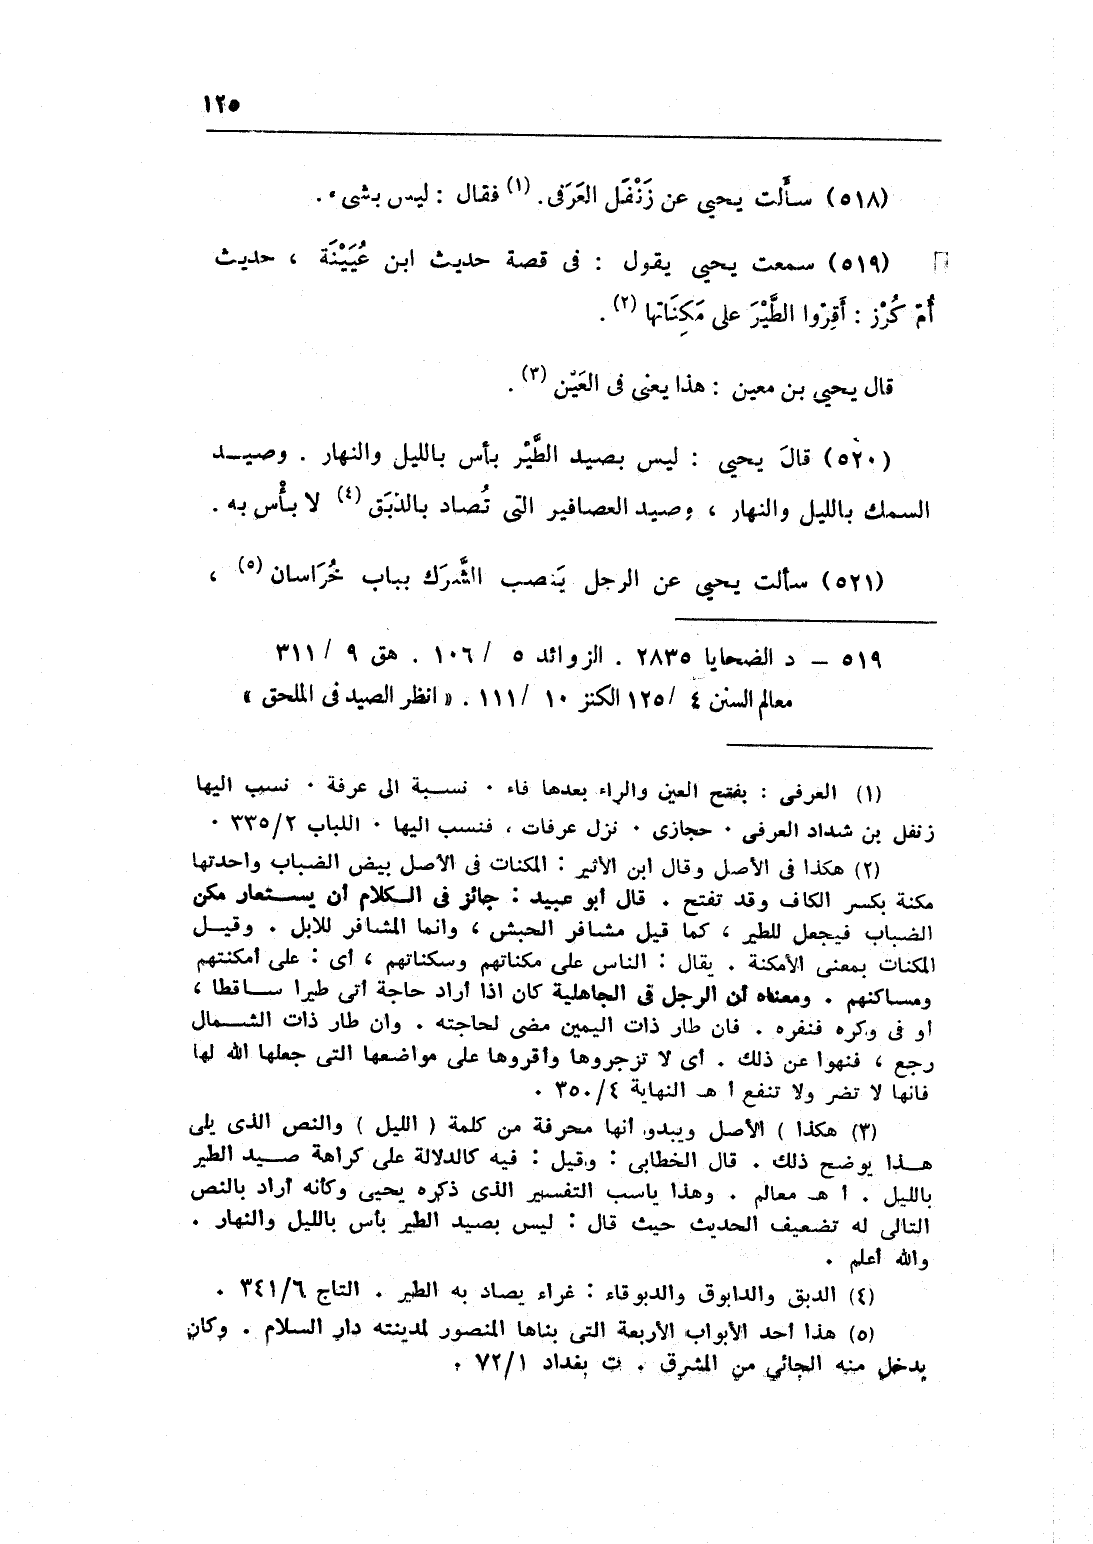 ١٢٥
(٥١٨) سأَلت يحيي عن زَنْفَل العَرَفى. (١) فقال : ليس بشىء .
(٥١٩) سمعت يحيي يقول : فى قصة حديث ابن عُيَيْنَة ، حديث
أُمّ كُرْز : أَقِرّوا الطَّيْرَ على مَكِنَاتها (٢) .
قال يحيي بن معين : هذا يعنى فى العَيْن (٣) .
(٥٢٠) قالَ يحيي : ليس بصيد الطَّيْر بأس بالليل والنهار . وصيــد
السمك بالليل والنهار ، وصيد العصافير التى تُصاد بالدَّبَق (٤) لا بأْس به .
(٥٢١) سألت يحيي عن الرجل يَنصب الشَّرَك بباب خُرَاسان (٥) ،
٥١٩ – د الضحايا ٢٨٣٥ . الزوائد ٥ / ١٠٦ . هق ٩ / ٣١١
معالم السنن ٤ / ١٢٥ الكنز ١٠ / ١١١ . « انظر الصيد فى الملحق »
(١) العرفى : بفتح العين والراء بعدها فاء ٠ نسبة الى عرفة ٠ نسب اليها
زنفل بن شداد العرفى ٠ حجازى ٠ نزل عرفات ، فنسب اليها ٠ اللباب ٣٣٥/٢ ٠
(٢) هكذا فى الأصل وقال ابن الأثير : المكنات فى الأصل بيض الضباب واحدتها
مكنة بكسر الكاف وقد تفتح . قال أبو عبيد : جائز فى الـكلام أن يسـتعار مكن
الضباب فيجعل للطير ، كما قيل مشافر الحبش ، وانما المشافر للابل . وقيـل
المكنات بمعنى الأمكنة . يقال : الناس على مكناتهم وسكناتهم ، أى : على أمكنتهم
ومساكنهم . ومعناه أن الرجل فى الجاهلية كان اذا أراد حاجة أتى طيرا ساقطا ،
أو فى وكره فنفره . فان طار ذات اليمين مضى لحاجته . وان طار ذات الشـمال
رجع ، فنهوا عن ذلك . أى لا تزجروها وأقروها على مواضعها التى جعلها الله لها
فانها لا تضر ولا تنفع أ هـ النهاية ٣٥٠/٤ ٠
(٣) هكذا ) الأصل ويبدو أنها محرفة من كلمة ( الليل ) والنص الذى يلى
هـذا يوضح ذلك . قال الخطابى : وقيل : فيه كالدلالة على كراهة صـيد الطير
بالليل . أ هـ معالم . وهذا ياسب التفسير الذى ذكره يحيى وكأنه أراد بالنص
التالى له تضعيف الحديث حيث قال : ليس بصيد الطير بأس بالليل والنهار .
والله أعلم .
(٤) الدبق والدابوق والدبوقاء : غراء يصاد به الطير . التاج ٣٤١/٦ .
(٥) هذا أحد الأبواب الأربعة التى بناها المنصور لمدينته دار السلام . وكان
يدخل منه الجائي من المشرق . ت بغداد ٧٢/١ .